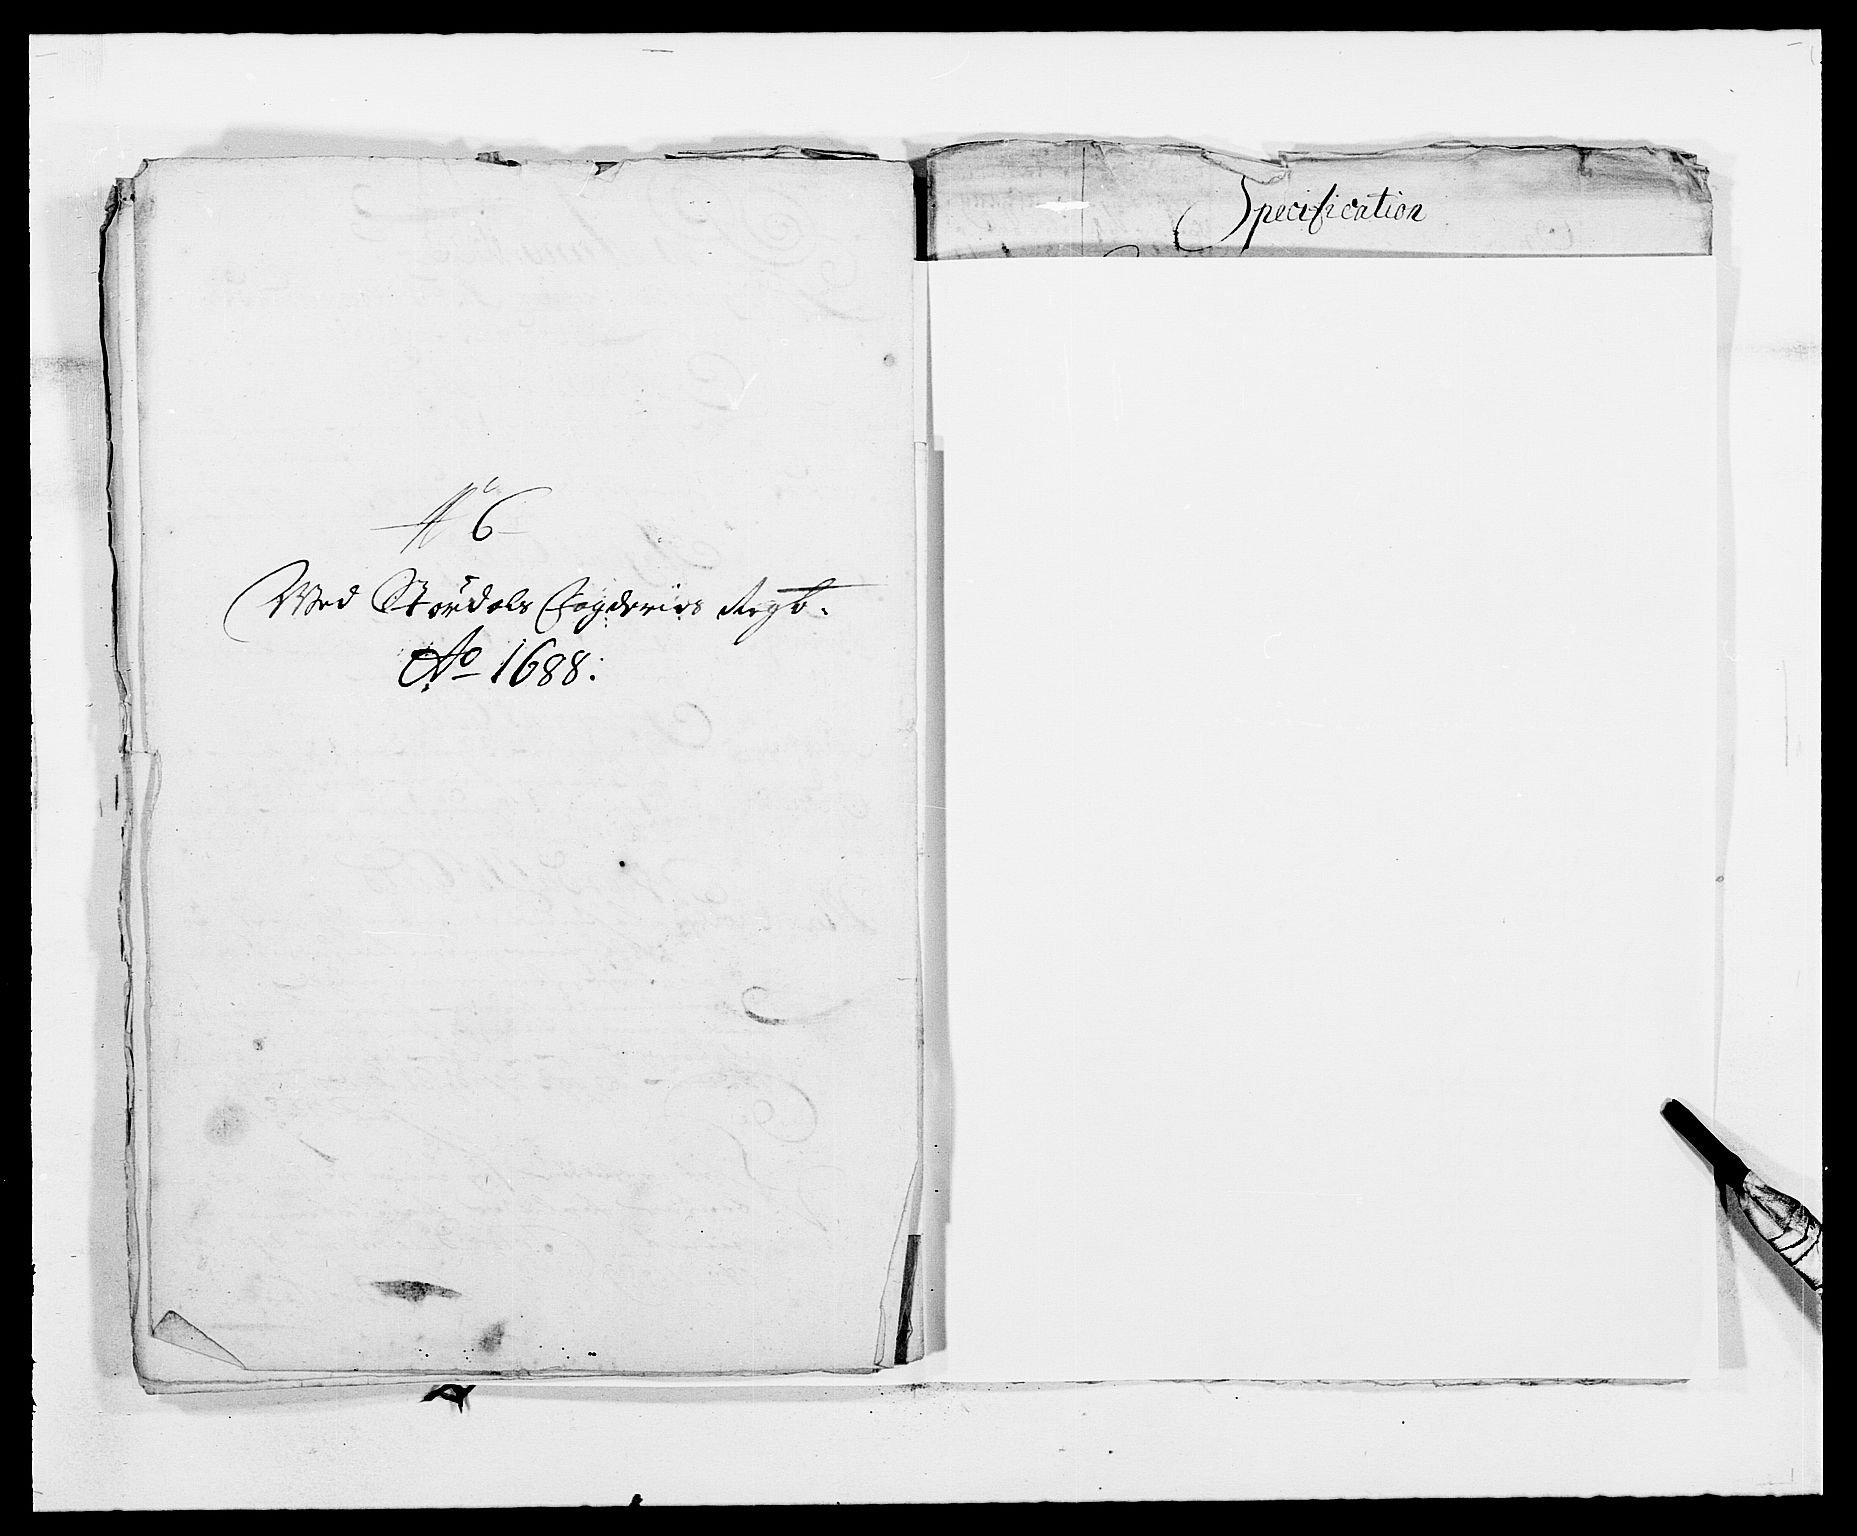 No 6
Med Størdals Fogderies Regb.
Ao 1688:
Specification